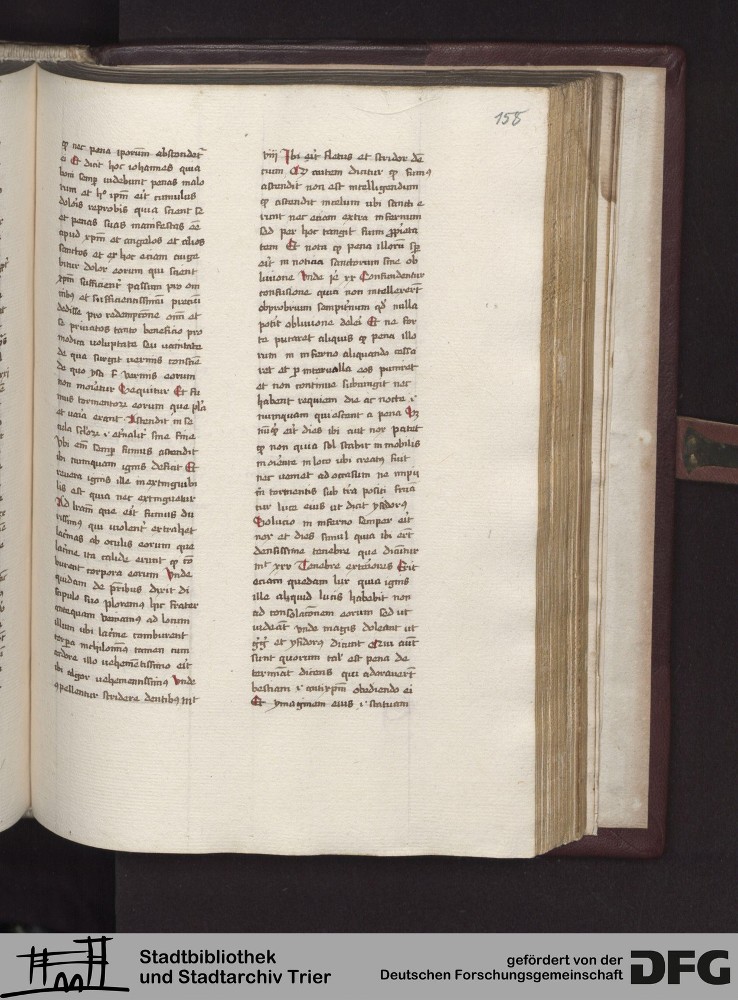 158
nec pena ipsorum abscondet
Et dicit hoc iohannes quia
boni semper videbunt penas malo
rum et hoc ipsum erit cumulus
doloris reprobis quia scient se
et penas suas manifestas esse
apud xpm et angelos et alios
sanctos et ex hoc etiam auge
bitur dolor eorum qui scient
xpm sufficient passum pro om
nibus et sufficientissimum precium
dedisse pro redempcione omnium et
se privatos tanto beneficio pro
modica voluptate seu vanitate
de qua surgit vermis conscie
de quo ysa vermis eorum
non morietur Sequitur Et fu
mus tormentorum eorum
et varia erant Ascendit in se
cula seculorum eternaliter sine fine
Ubi enim semper fumus ascendit
ibi numquam ignis deficit Et
revera ignis ille inextinguibi
lis est quia nec extinguetur
Ad literam que erit fumus du
rissimus qui violenter extrahet
lacrimas ab oculis eorum que
lacrime ita calide erunt quod com
burent corpora eorum Unde
quidam de patribus dixit di
scipulo suo ploremus hic frater
antequam veniamus ad locum
illum ubi lacrime comburent
corpora nichilominus tamen cum
ardore illo vehementissimo erit
ibi algor vehementissimus Unde
conpellentur stridere dentibus mt
viii Ibi erit fletus et stridor den
tium autem dicitur quod fumus
ascendit non est intelligendum
quod ascendit in celum ubi sancti e
runt nec etiam extra infernum
sed per hoc tangit
tem Et nota quod pena illorum semper
erit in noticia sanctorum sine ob
livione Unde Je xx Confundentur
confusione quia non intellexerunt
obprobrium sempiternum quod nulla
poterit oblivione deleri Et ne for
te putaret aliquis quod pena illo
rum in inferno aliquando cessa
ret et per intervalla eos puniret
et non continue subiungit nec
habent requiem die ac nocte i
numquam quiescunt a pena
erit dies ibi aut nox patet
quod non quia sol stabit immobilis
in oriente in loco ubi creatus fuit
nec veniet ad occasum ne impii
in tormentis sub terra positi frua
tur luce eius ut dicit ysidorus
Solucio in inferno semper erit
nox et dies simul quia ibi erunt
densissime tenebre que dicuntur
mt xxv Tenebre exteriores Erit
etiam quedam lux quia ignis
ille aliquid lucis habebit non
ad consolacionem eorum sed ut
videant unde magis doleant ut
gg et ysidorus dicunt Qui autem
sunt quorum talis est pena de
terminat dicens qui adoraverunt
bestiam i antixpm obediendo ei
Et ymaginem eius i statuam
Stadtbibliothek
und Stadtarchiv Trier
gefördert von der
Deutschen Forschungsgemeinschaft
DFG